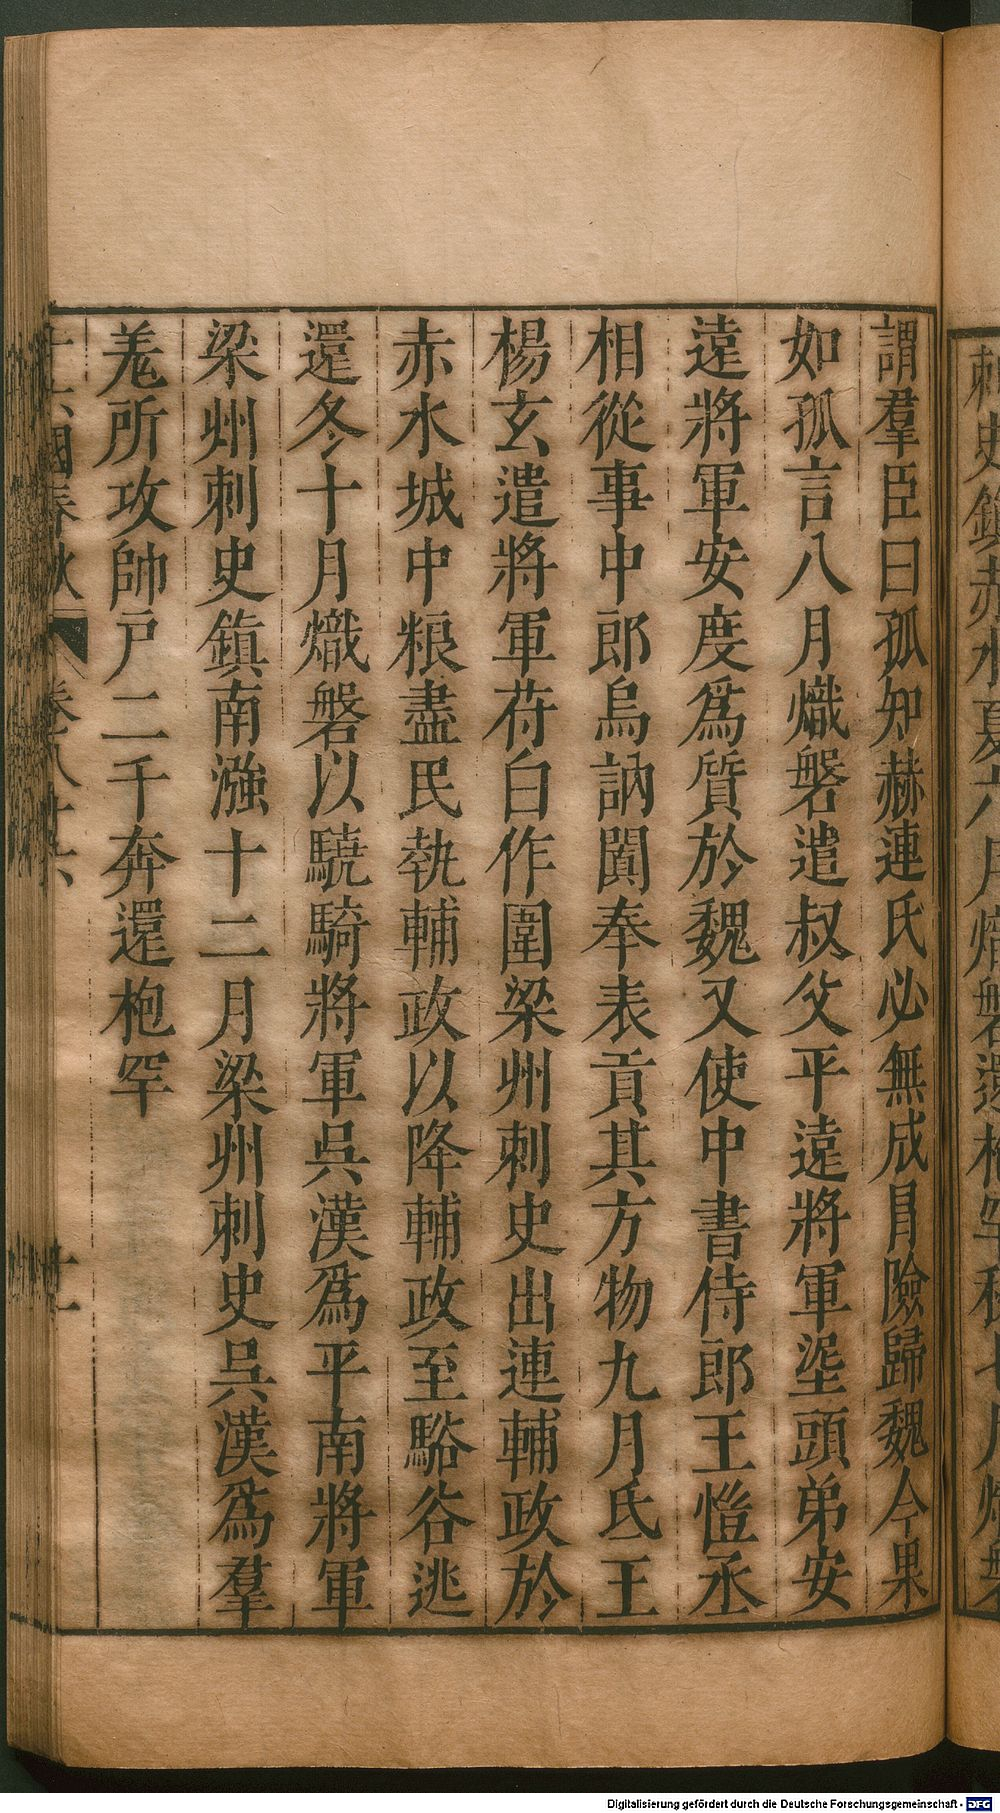 謂羣臣曰孤知赫連氏必無成冐險歸魏今果
如孤言八月熾磐遣叔父平遠將軍埿頭弟安
遠將軍安度爲質於魏又使中書侍郎王愷丞
相從事中郎烏訥闐奉表貢其方物九月氐王
楊玄遣將軍苻白作圍梁州刺史出連輔政於
赤水城中粮盡民執輔政以降輔政至駱谷逃
還冬十月熾磐以驍騎將軍吳漢爲平南將軍
梁州刺史鎮南漒十二月梁州刺史吳漢爲羣
羗所攻帥戸二千奔還枹罕
十六國春秋 卷八十六 十一
Digitalisierung gefördert durch die Deutsche Forschungsgemeinschaft - DFG